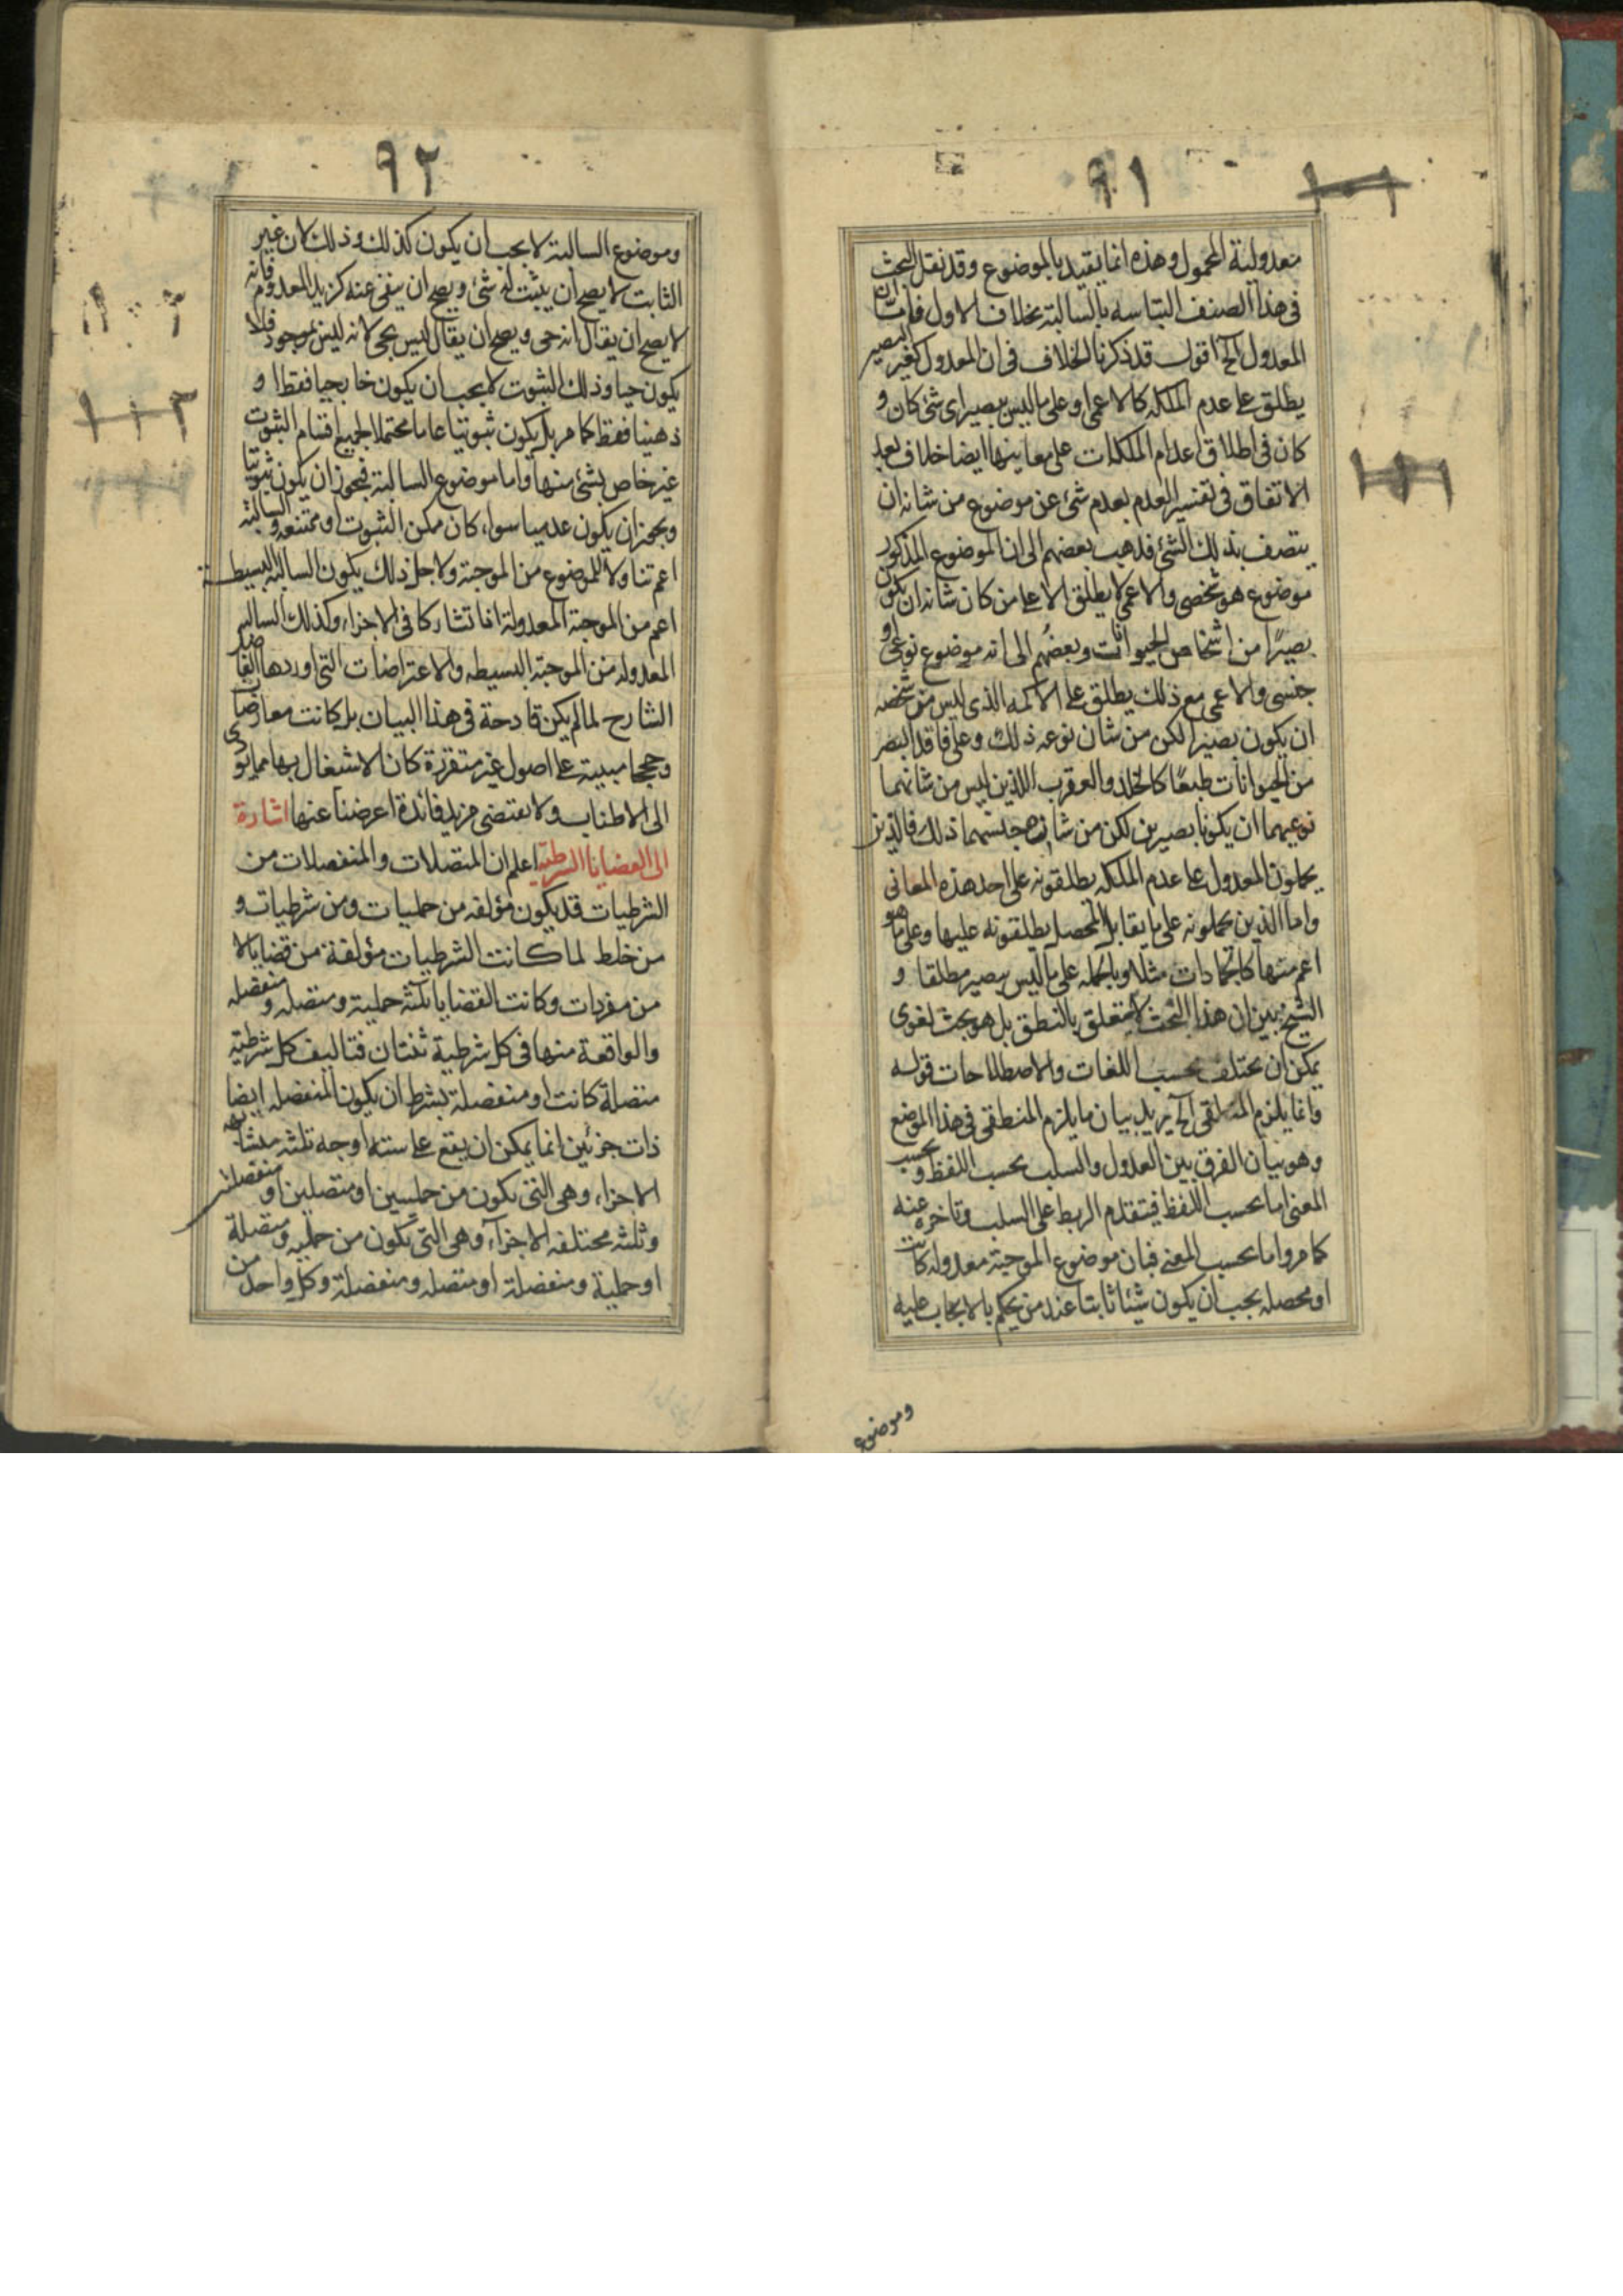 ٩١
معدولية المحمول وهذه انما يقيد بالموضوع وقد نقل البحث
فى هذا الصنف التباسه بالسالبة بخلاف الاول فاما ان
المعدول الخ اقول قد ذكرنا الخلاف فى ان المعدول كغير البصير
يطلق على عدم الملكه كالاعمى او على ما ليس ببصير اى شئ كان و
كان فى اطلاق اعدام الملكات على معانيها ايضا خلاف بعد
الاتفاق فى تفسير العدم بعدم شئ عن موضوع من شانه ان
يتصف بذلك الشئ فذهب بعضهم الى ان الموضوع المذكور
موضوع هو شخصى والاعمى لا يطلق الا على من كان شانه ان يكون
بصيرًا من اشخاص الحيوانات وبعضهم الى انه موضوع نوعى او
جنسى والاعمى مع ذلك يطلق على الاكمه الذى ليس من شخصه
ان يكون بصيرا لكن من شان نوعه ذلك وعلى فاقد البصر
من الحيوانات طبعًا كالخلد والعقرب اللذين ليس من شانهما
نوعيهما ان يكونا بصيرين لكن من شان جنسهما ذلك فالذين
يحملون المعدول على عدم الملكه يطلقونه على احد هذه المعانى
واما الذين يحملونه على ما يقابل المحصل يطلقونه عليها وعلى ما هو
اعم منها كالجمادات مثلا وبالجمله على ما ليس ببصير مطلقا و
الشيخ بين ان هذا البحث لا يتعلق بالمنطق بل هو بحث لغوى
يمكن ان يختلف بحسب اللغات والاصطلاحات قوله
وانما يلزم المنطقى الخ يريد بيان ما يلزم المنطقى فى هذا الموضع
وهو بيان الفرق بين العدول والسلب بحسب اللفظ وبحسب
المعنى اما بحسب اللفظ فبتقدم الربط على السلب وتاخره عنه
كما مر واما بحسب المعنى فبان موضوع الموجبة معدوله كانت
او محصله يجب ان يكون شيئا ثابتا عند من يحكم بالايجاب عليه
وموضوع
٩٢
وموضوع السالبة لا يجب ان يكون كذلك وذلك لان غير
الثابت لا يصح ان يثبت له شئ ويصح ان ينفى عنه كزيد المعدوم فانه
لا يصح ان يقال انه حى ويصح ان يقال ليس بحى لانه ليس بموجود فلا
يكون حيا وذلك الثبوت لا يجب ان يكون خارجيا فقط او
ذهنيا فقط كما مر بل يكون ثبوتيا عاما محتملا لجميع اقسام الثبوت
غير خاص بشئ منها واما موضوع السالبة فيجوز ان يكون ثبوتيا
ويجوز ان يكون عدميا سواء كان ممكن الثبوت او ممتنعه والسالبة
اعم تناولا للموضوع من الموجبة ولاجل ذلك يكون السالبة البسيطة
اعم من الموجبة المعدولة اذا تشاركا فى الاجزاء وكذلك السالبه
المعدوله من الموجبة البسيطه والاعتراضات التى اوردها الفاضل
الشارح لما لم يكن قادحة فى هذا البيان بل كانت معارضات
وحججا مبنية على اصول غير متقررة كان الاشتغال بها مما يؤدى
الى الاطناب ولا يقتضى مزيد فائدة اعرضنا عنها اشارة
الى القضايا الشرطية اعلم ان المتصلات والمنفصلات من
الشرطيات قد يكون مؤلفه من حمليات ومن شرطيات و
من خلط لما كانت الشرطيات مؤلفة من قضايا لا
من مفردات وكانت القضايا ثلثه حملية ومتصله ومنفصله
والواقعة منها فى كل شرطية ثنتان فتاليف كل شرطية
متصلة كانت او منفصلة بشرط ان يكون المنفصله ايضا
ذات جزئين انما يمكن ان يقع على سته اوجه ثلثه متشابهه
الاجزاء وهى التى يكون من حمليتين او متصلين او منفصلين
وثلثه مختلفه الاجزاء وهى التى تكون من حمليه ومتصلة
او حملية ومنفصلة او متصله ومنفصلة وكل واحد من